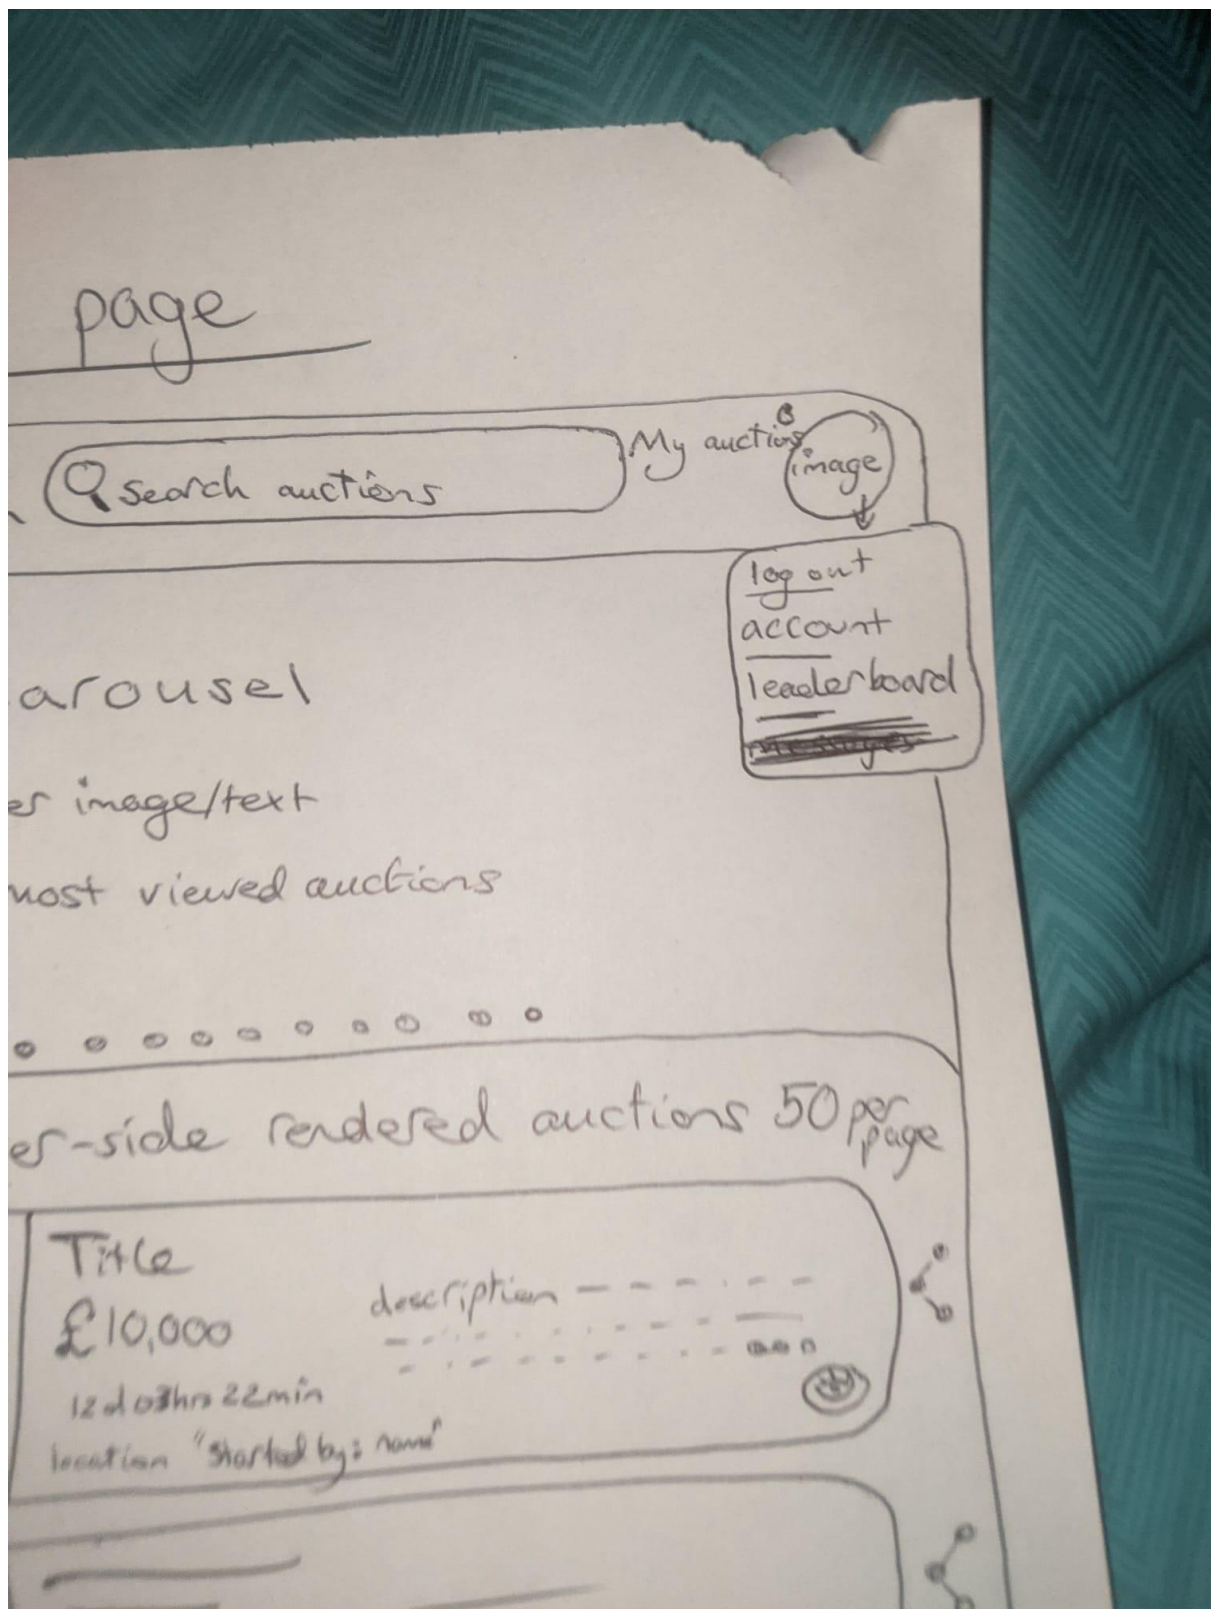 page
search auctions
My auctions
image
log out
account
leaderboard
messages
arousel
er image/text
most viewed auctions
er-side rendered auctions 50 per page
Title
£10,000
description
12d 03hrs 22min
location "Started by: name"